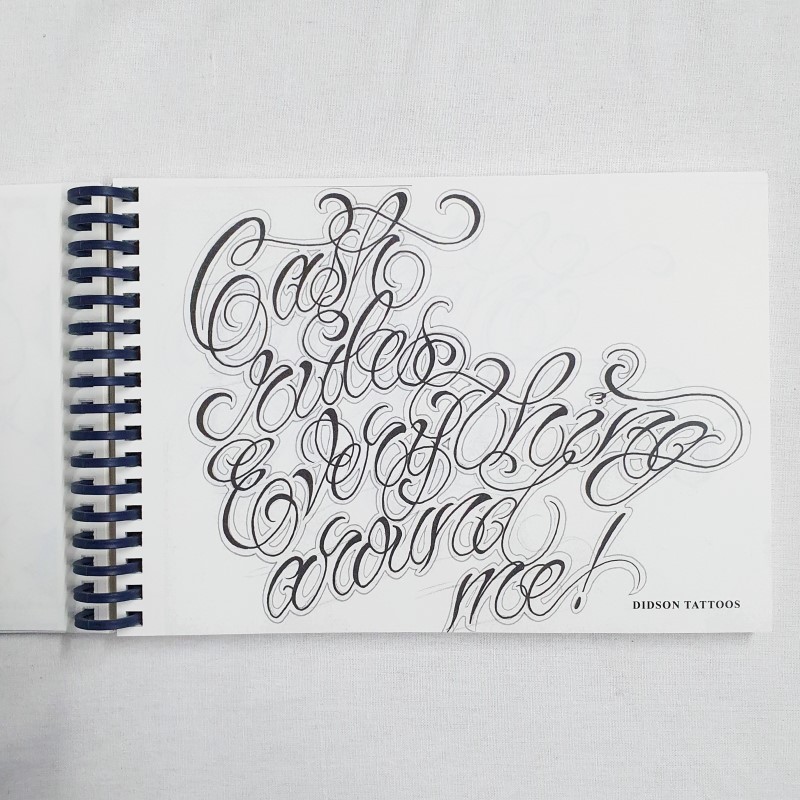 Cash
rules
Everything
around
me!
DIDSON TATTOOS